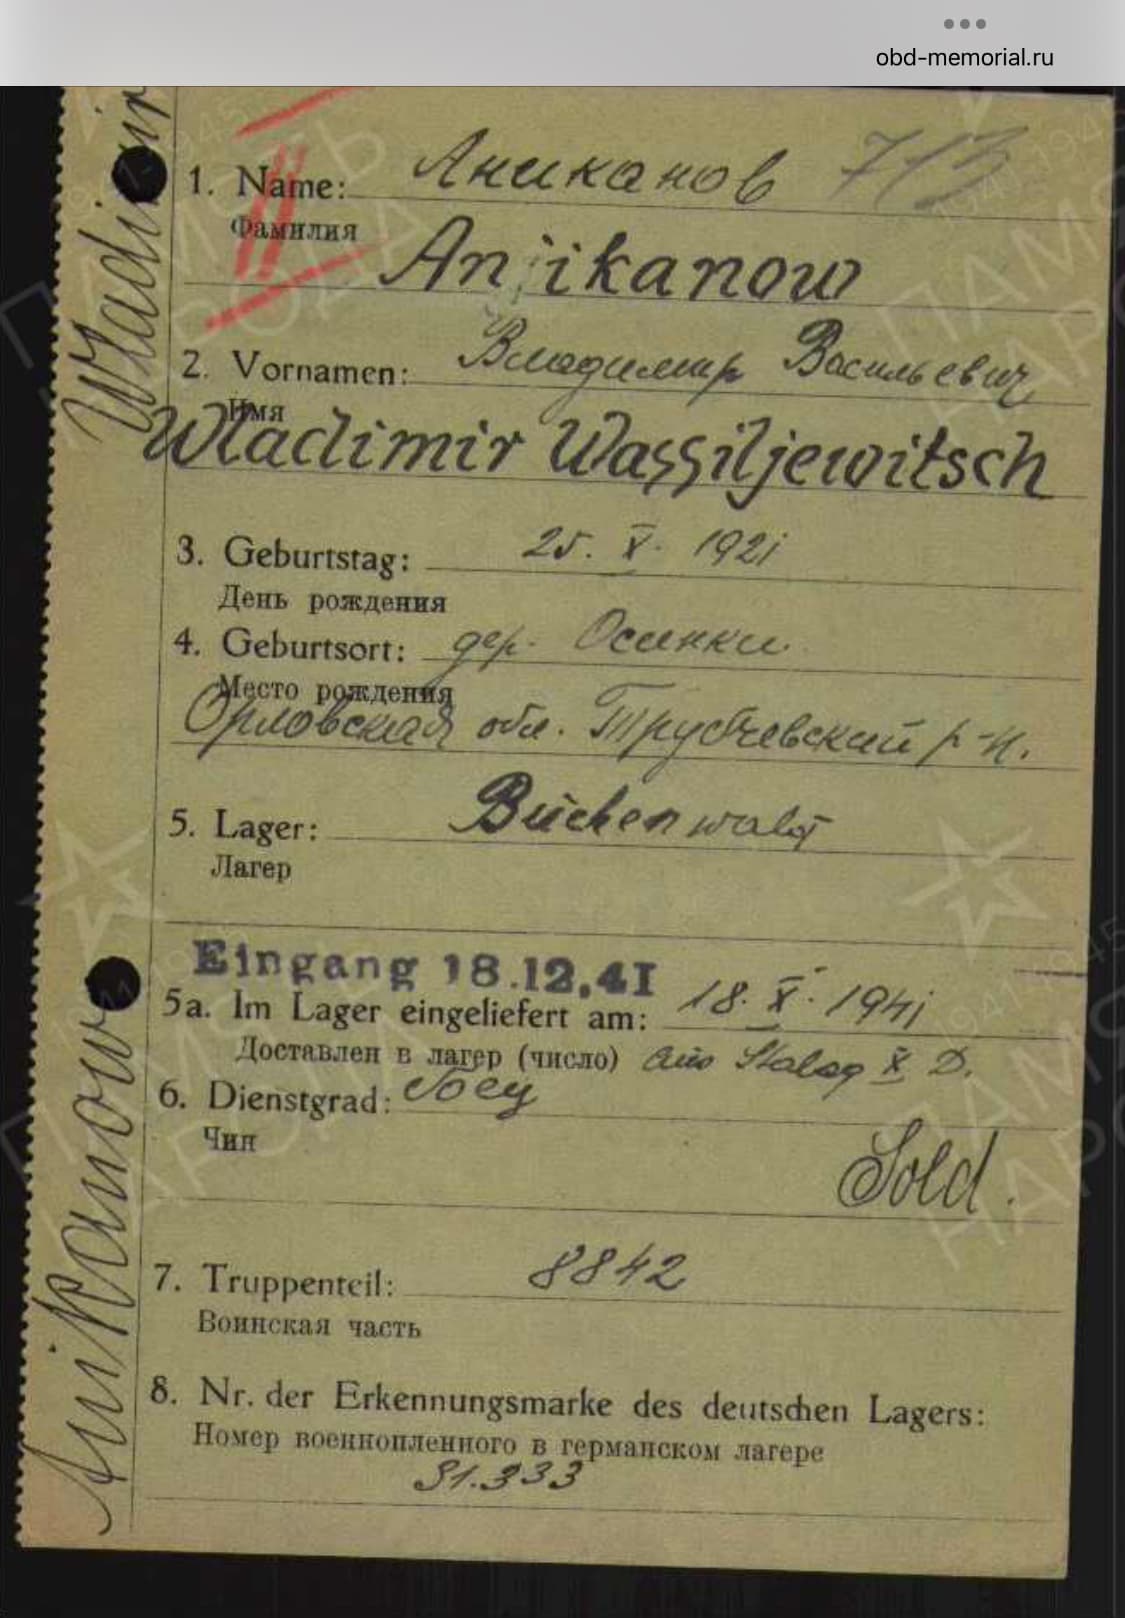 obd-memorial.ru
1. Name: Аниканов 713
Фамилия
Anjikanow
2. Vornamen: Владимир Васильевич
Имя
Wladimir Wassiljewitsch
3. Geburtstag: 25. X. 1921
День рождения
4. Geburtsort: дер. Осинки
Место рождения
Орловская обл. Трубчевский р-н.
5. Lager: Buchenwald
Лагер
Eingang 18.12.41
5a. Im Lager eingeliefert am: 18. X. 1941
Доставлен в лагер (число) aus Stalag X D.
6. Dienstgrad: боец
Чин
Sold.
7. Truppenteil: 8842
Воинская часть
8. Nr. der Erkennungsmarke des deutschen Lagers:
Номер военнопленного в германском лагере
31.333
Anikanow Wladimir